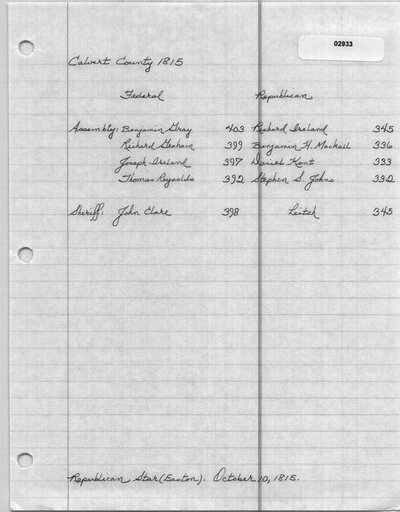 02933
Calvert County 1815
Federal Republican
Assembly: Benjamin Gray 403 Richard Ireland 345
Richard Graham 399 Benjamin H. Mackall 336
Joseph Ireland 397 Daniel Kent 333
Thomas Reynolds 392 Stephen S. Johns 332
Sheriff: John Clare 398 Leitch 345
Republican Star (Easton). October 10, 1815.